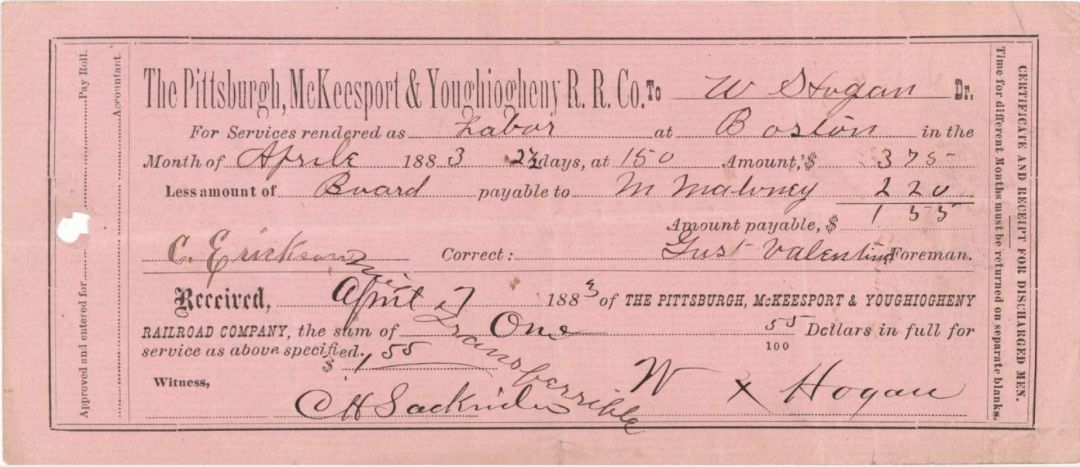 The Pittsburgh, McKeesport & Youghiogheny R. R. Co. To W Hogan Dr.
For Services rendered as Labor at Boston in the
Month of Aprile 1883 2½ days, at 150 Amount, $ 3 75
Less amount of Board payable to M Maloney 2 20
Amount payable, $ 1 55
C. Erickson Correct: Gust Valentine Foreman.
Received, April 7 1883 of THE PITTSBURGH, McKEESPORT & YOUGHIOGHENY
RAILROAD COMPANY, the sum of One 55/100 Dollars in full for
service as above specified. $ 1 55
Not Transferrible
Witness, W x Hogan
C H
Approved and entered for Pay Roll.
Accountant.
CERTIFICATE AND RECEIPT FOR DISCHARGED MEN.
Time for different Months must be returned on separate blanks.